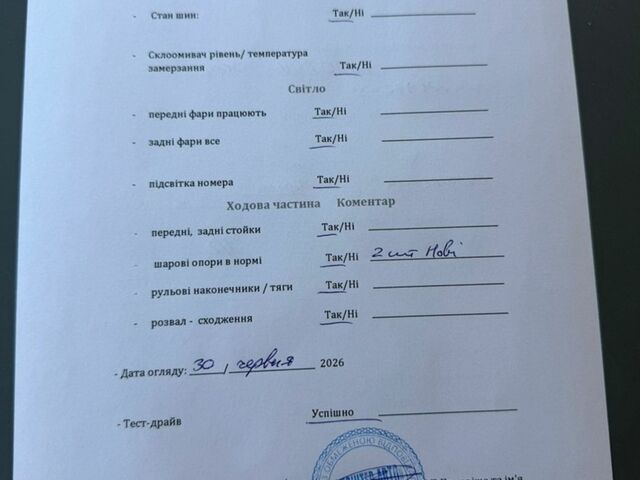 - Стан шин: Так/Ні
- Склоомивач рівень/ температура
замерзання Так/Ні
Світло
- передні фари працюють Так/Ні
- задні фари все Так/Ні
- підсвітка номера Так/Ні
Ходова частина Коментар
- передні, задні стойки Так/Ні
- шарові опори в нормі Так/Ні 2 шт Нові
- рульові наконечники / тяги Так/Ні
- розвал - сходження Так/Ні
- Дата огляду: 30 / червня 2026
- Тест-драйв Успішно
З ОБМЕЖЕНОЮ ВІДПОВІД